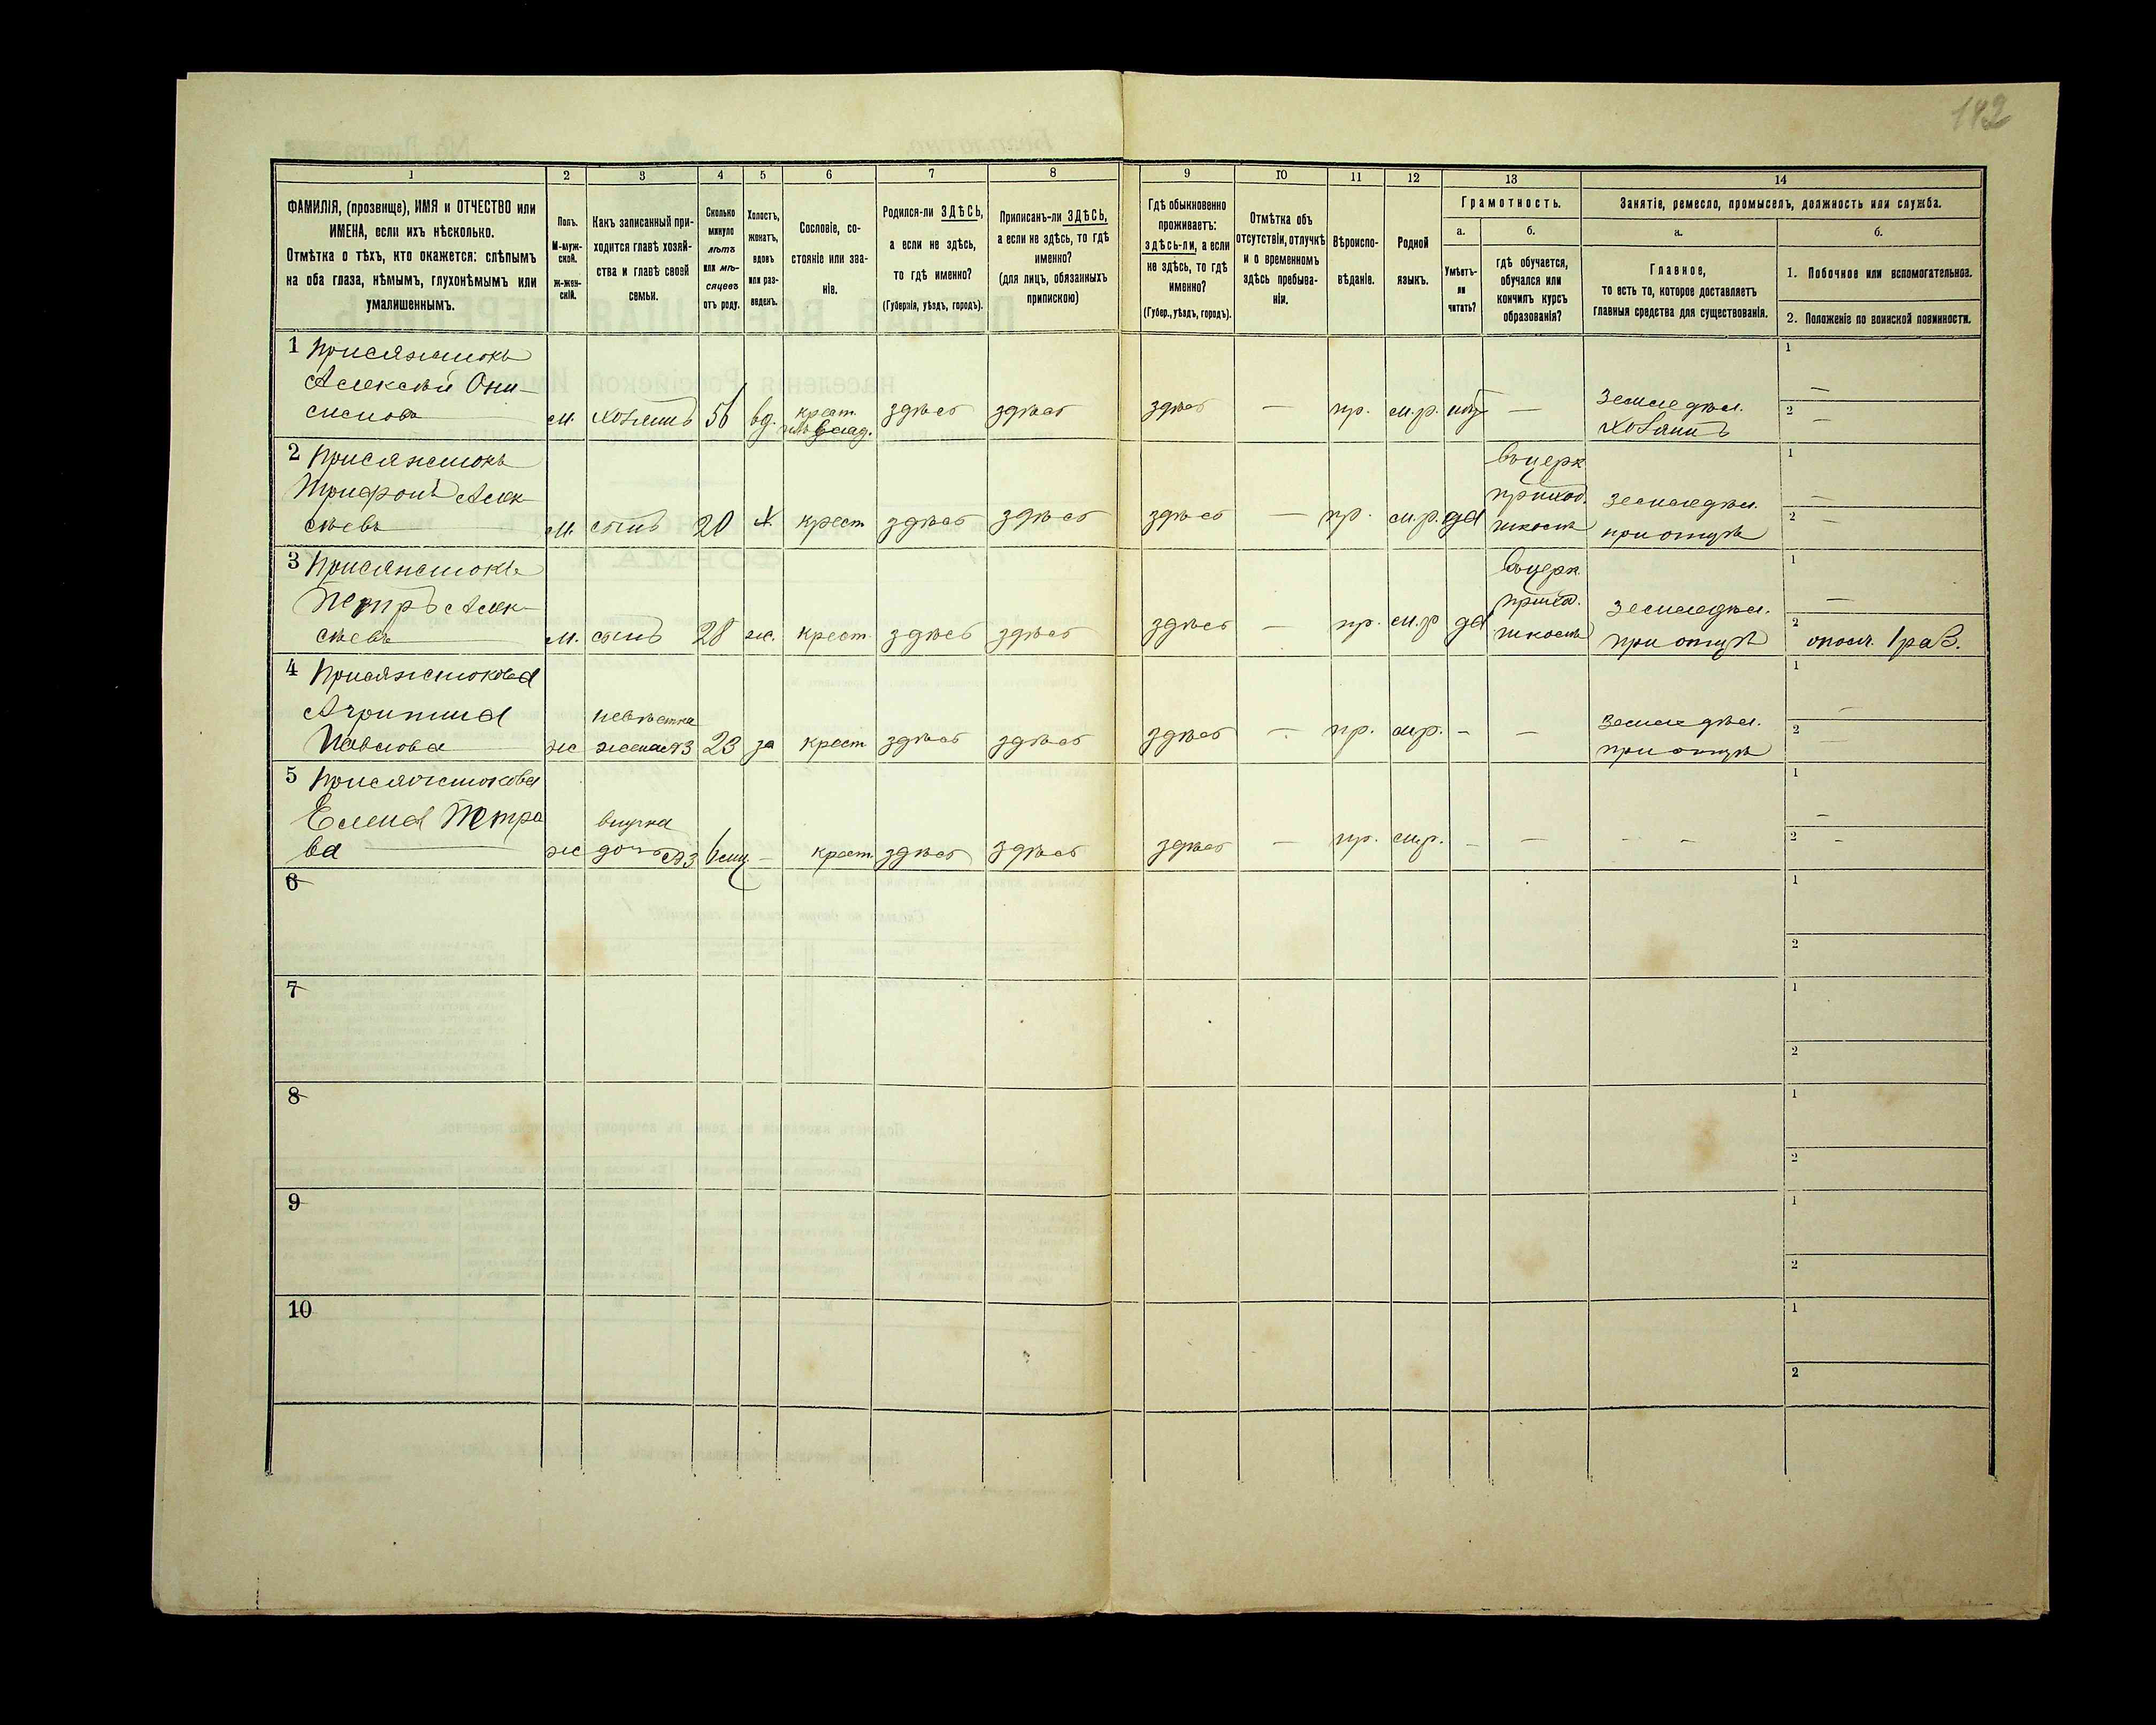 142
1 2 3 4 5 6 7 8 9 10 11 12 13 14
ФАМИЛІЯ, (прозвище), ИМЯ и ОТЧЕСТВО или
ИМЕНА, если ихъ нѣсколько.
Отмѣтка о тѣхъ, кто окажется: слѣпымъ
на оба глаза, нѣмымъ, глухонѣмымъ или
умалишеннымъ.
Полъ.
М-муж-
ской.
ж-жен-
скій.
Какъ записанный при-
ходится главѣ хозяй-
ства и главѣ своей
семьи.
Сколько
минуло
лѣтъ
или мѣ-
сяцевъ
отъ роду.
Холостъ,
женатъ,
вдовъ
или раз-
веденъ.
Сословіе, со-
стояніе или зва-
ніе.
Родился-ли ЗДѢСЬ,
а если не здѣсь,
то гдѣ именно?
(Губернія, уѣздъ, городъ).
Приписанъ-ли ЗДѢСЬ,
а если не здѣсь, то гдѣ
именно?
(для лицъ, обязанныхъ
припискою)
Гдѣ обыкновенно
проживаетъ:
здѣсь-ли, а если
не здѣсь, то гдѣ
именно?
(Губер., уѣздъ, городъ).
Отмѣтка объ
отсутствіи, отлучкѣ
и о временномъ
здѣсь пребыва-
ніи.
Вѣроиспо-
вѣданіе.
Родной
языкъ.
Грамотность.
а. б.
Умѣетъ-
ли
читать?
гдѣ обучается,
обучался или
кончилъ курсъ
образованія?
Занятіе, ремесло, промыселъ, должность или служба.
а. б.
Главное,
то есть то, которое доставляетъ
главныя средства для существованія.
1. Побочное или вспомогательное.
2. Положеніе по воинской повинности.
1 Присяжнюкъ
Алексѣй Они-
симовъ м. хозяинъ 56 вд. крест. здѣсь здѣсь здѣсь — пр. м.р. нѣтъ — земледѣл. 1 —
хозяинъ 2 —
2 Присяжнюкъ
Трифонъ Алек-
сѣевъ м. сынъ 20 х. крест здѣсь здѣсь здѣсь — пр. м.р. да въ церк
приход.
школѣ земледѣл.
при отцѣ 1 —
2 —
3 Присяжнюкъ
Петръ Алек-
сѣевъ м. сынъ 28 ж. крест. здѣсь здѣсь здѣсь — пр. м.р да въ церк.
приход.
школѣ земледѣл.
при отцѣ 1 —
2 ополч. 1 раз.
4 Присяжнюкова
Агрипина
Павлова ж невѣстка
жена №3 23 за крест здѣсь здѣсь здѣсь — пр. м.р. - — земледѣл.
при отцѣ 1 —
2 —
5 Присяжнюкова
Елена Петро
ва ж внучка
дочь №3 6 мц — крест. здѣсь здѣсь здѣсь — пр. м.р. - — - - 1 —
2 -
6 1
2
7 1
2
8 1
2
9 1
2
10 1
2